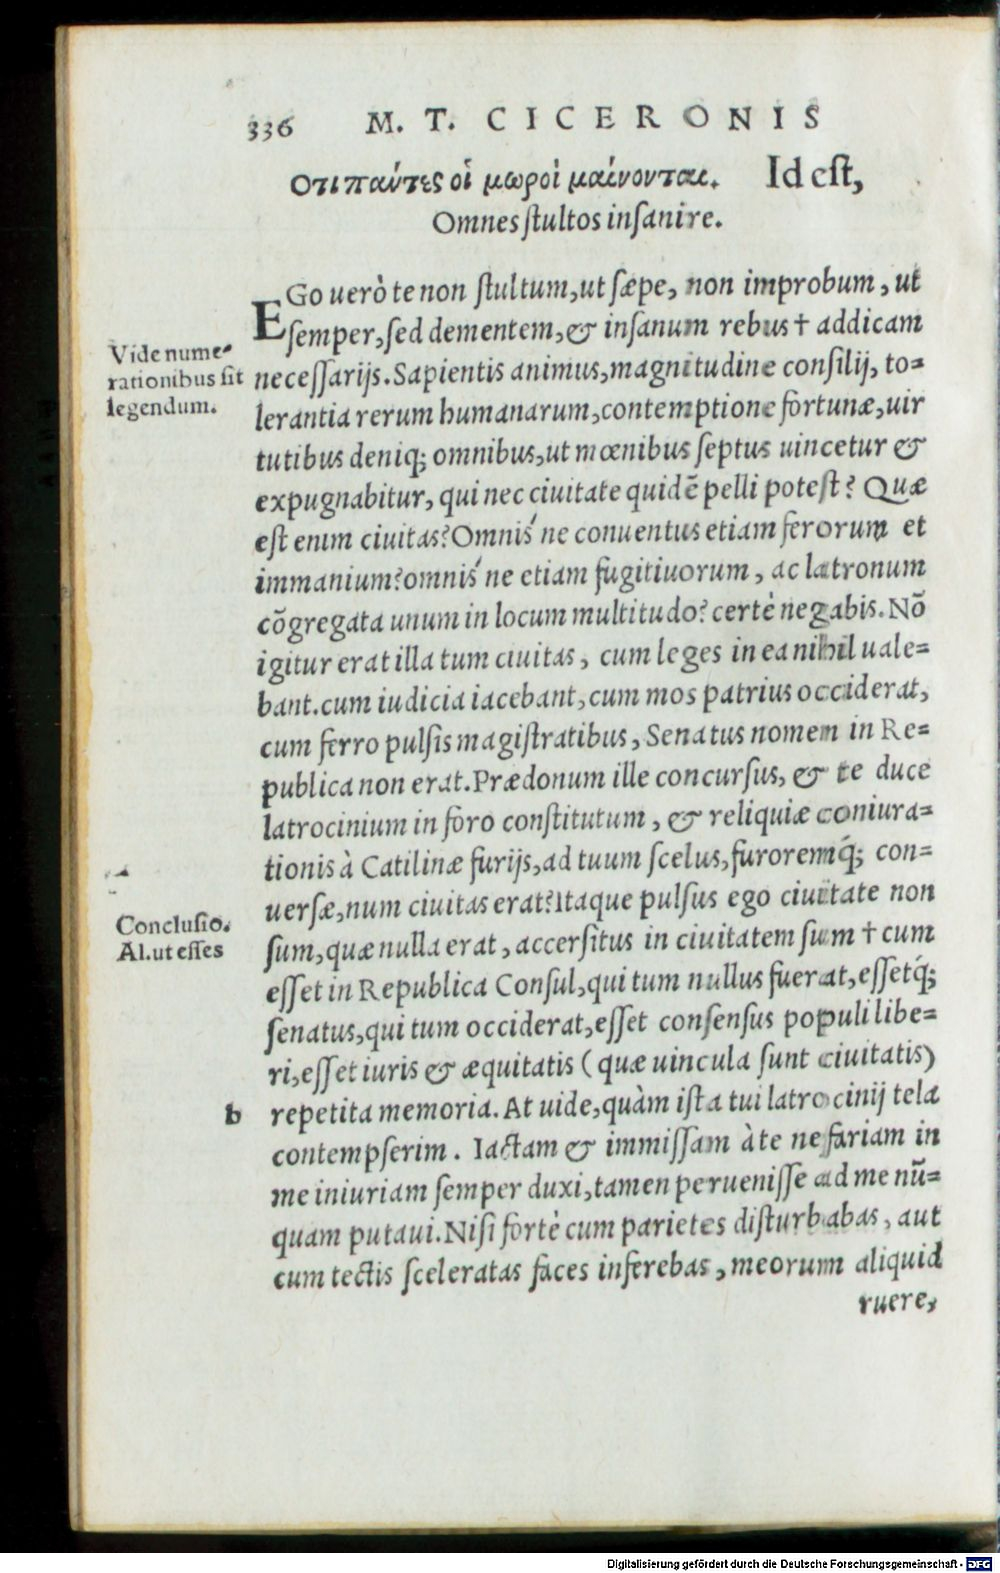 336 M. T. CICERONIS
Οτι παύτες οἱ μωροὶ μαίνονται. Id est,
Omnes stultos insanire.
EGo uerò te non stultum, ut sæpe, non improbum, ut
semper, sed dementem, & insanum rebus † addicam
necessarijs. Sapientis animus, magnitudine consilij, to=
lerantia rerum humanarum, contemptione fortunæ, uir
tutibus deniq; omnibus, ut mœnibus septus uincetur &
expugnabitur, qui nec ciuitate quidē pelli potest? Quæ
est enim ciuitas? Omnis´ne conuentus etiam ferorum et
immanium? omnis´ne etiam fugitiuorum, ac latronum
cōgregata unum in locum multitudo? certè negabis. Nō
igitur erat illa tum ciuitas, cum leges in ea nihil uale=
bant. cum iudicia iacebant, cum mos patrius occiderat,
cum ferro pulsis magistratibus, Senatus nomen in Re=
publica non erat. Prædonum ille concursus, & te duce
latrocinium in foro constitutum, & reliquiæ coniura=
tionis à Catilinæ furijs, ad tuum scelus, furoremq́; con=
uersæ, num ciuitas erat? Itaque pulsus ego ciuitate non
sum, quæ nulla erat, accersitus in ciuitatem sum † cum
esset in Republica Consul, qui tum nullus fuerat, essetq́;
senatus, qui tum occiderat, esset consensus populi libe=
ri, esset iuris & æquitatis (quæ uincula sunt ciuitatis)
repetita memoria. At uide, quàm ista tui latrocinij tela
contempserim. Iactam & immissam à te nefariam in
me iniuriam semper duxi, tamen peruenisse ad me nū=
quam putaui. Nisi fortè cum parietes disturbabas, aut
cum tectis sceleratas faces inferebas, meorum aliquid
ruere,
Vide nume=
rationibus sit
legendum.
Conclusio.
Al. ut esses
b
Digitalisierung gefördert durch die Deutsche Forschungsgemeinschaft - DFG